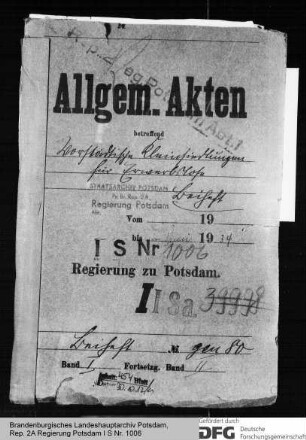 Allgem. Akten
betreffend
Vorstädtische Kleinsiedlungen
für Erwerbslose
STAATSARCHIV POTSDAM
Beiheft
Pr. Br. Rep. 2A
Regierung Potsdam
Vom 19
bis 1934
I S Nr 1006
Regierung zu Potsdam.
I Sa.
Beiheft № gen 80
Band I Fortsetzg. Band II
Brandenburgisches Landeshauptarchiv Potsdam,
Rep. 2A Regierung Potsdam I S Nr. 1006
Gefördert durch
DFG Deutsche
Forschungsgemeinschaft